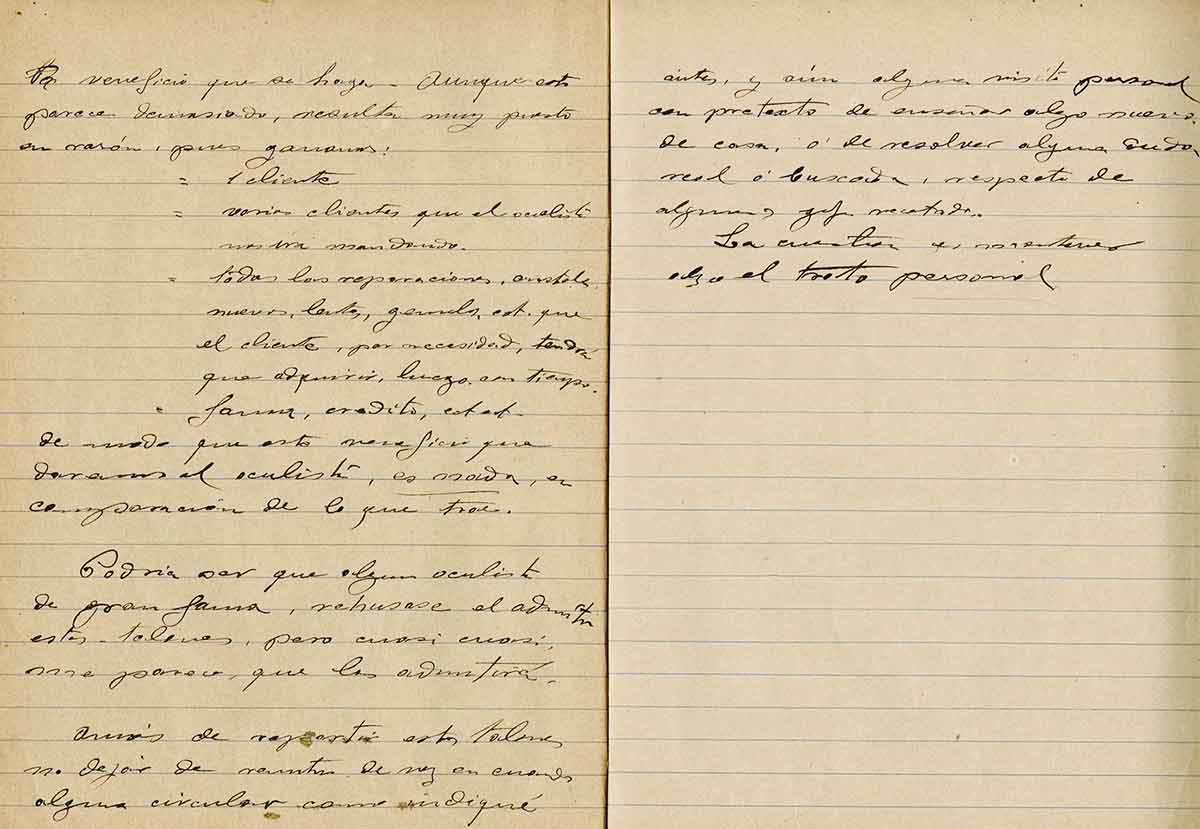 veneficio que se haga. Aunque esto
parece demasiado, resulta muy puesto
en razón, pues ganamos:
= 1 cliente
= varios clientes que el oculista
nos irá mandando.
= todas las reparaciones, cristales
nuevos, lentes, gemelos, ect. que
el cliente, por necesidad, tendrá
que adquirir, luego, con tiempo.
= fama, credito, ect ect
de modo que este veneficio que
daremos al oculista, es nada, en
comparación de lo que trae.
Podria ser que algun oculista
de gran fama, rehusase el admitir
estos talones, pero cuasi cuasi,
me parece, que los admitirá.
Amás de repartir estos talones
no dejar de remitir de vez en cuando
alguna circular como indiqué
antes, y aún alguna visita personal
con pretexto de enseñar algo nuevo
de casa, ó de resolver alguna duda
real ó buscada, respecto de
algunas gafas recetadas.
La cuestion es mantener
algo el trato personal